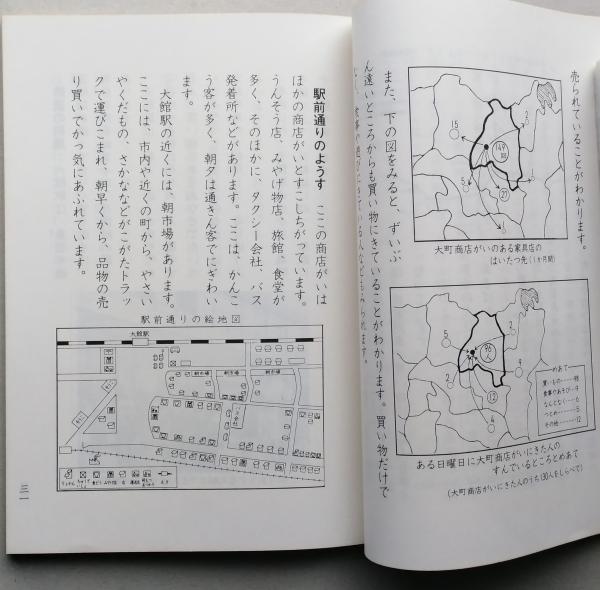 売られていることがわかります。
また、下の図をみると、ずいぶ
ん遠いところからも買い物にきていることがわかります。買い物だけで
149
15
2
5
27
大町商店がいのある家具店の
はいたつ先(1か月間)
5
2
9
12
4
めあて
買いもの
食事やあそび
なんとなく
つとめ
その他
ある日曜日に大町商店がいにきた人の
すんでいるところとめあて
(大町商店がいにきた人のうち130人をしらべて)
駅前通りのようす ここの商店がいは
ほかの商店がいとすこしちがっています。
うんそう店、みやげ物店、旅館、食堂が
多く、そのほかに、タクシー会社、バス
発着所などがあります。ここは、かんこ
う客が多く、朝夕は通きん客でにぎわい
ます。
大館駅の近くには、朝市場があります。
ここには、市内や近くの町から、やさい
やくだもの、さかななどがこがたトラッ
クで運びこまれ、朝早くから、品物の売
り買いでかっ気にあふれています。
駅前通りの絵地図
大館駅
朝市場
朝市場
三一